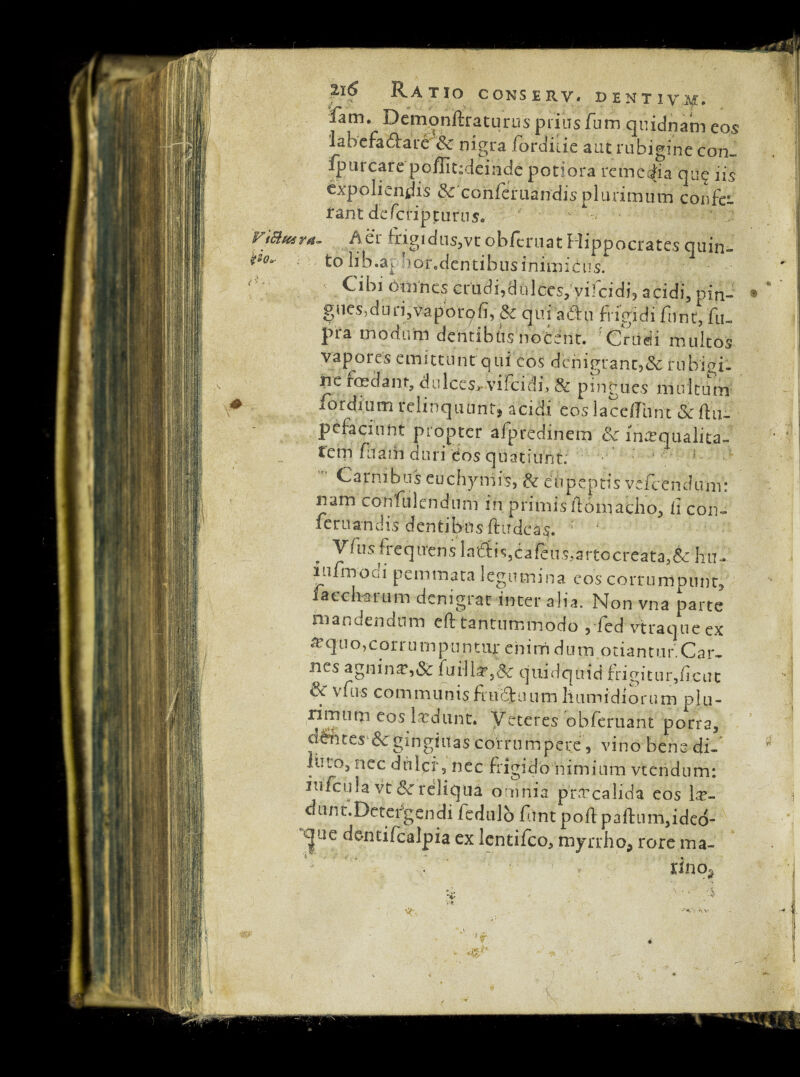 216 RATIO CONSERV. DENTIVM.
ſam. Demonſtraturus prius ſum quidnam eos
labefactare & nigra ſorditie aut rubigine con-
ſpurcare poſſit: deinde potiora remedia quę iis
expoliendis & conſeruandis plurimum confe-
rant deſcripturus.
Victus ra- Aër frigidus, vt obſeruat Hippocrates quin-
tio. to lib. aphor. dentibus inimicus.
Cibi omnes crudi, dulces, viſcidi, acidi, pin-
gues, duri, vaporoſi, & qui actu frigidi ſunt, ſu-
pra modum dentibus nocent. Crudi multos
vapores emittunt qui eos denigrant, & rubigi-
ne fœdant, dulces, viſcidi, & pingues multum
ſordium relinquunt, acidi eos laceſſunt & ſtu-
pefaciunt propter aſpredinem & inæqualita-
tem ſuam duri eos quatiunt.
Carnibus euchymis, & eupeptis veſcendum:
nam conſulendum in primis ſtomacho, ſi con-
ſeruandis dentibus ſtudeas.
Vſus frequens lactis, caſeus, artocreata, & hu-
iuſmodi pemmata legumina eos corrumpunt,
ſaccharum denigrat inter alia. Non vna parte
mandendum eſt tantummodo, ſed vtraque ex
æquo, corrumpuntur enim dum otiantur. Car-
nes agninæ, & ſuillæ, & quidquid frigitur, ſicut
& vſus communis fructuum humidiorum plu-
rimum eos lædunt. Veteres obſeruant porra,
dentes & gingiuas corrumpere, vino bene di-
luto, nec dulci, nec frigido nimium vtendum:
iuſcula vt & reliqua omnia præcalida eos læ-
dunt. Detergendi ſedulò ſunt poſt paſtum, ideó-
que dentiſcalpia ex lentiſco, myrrho, rore ma-
rino,